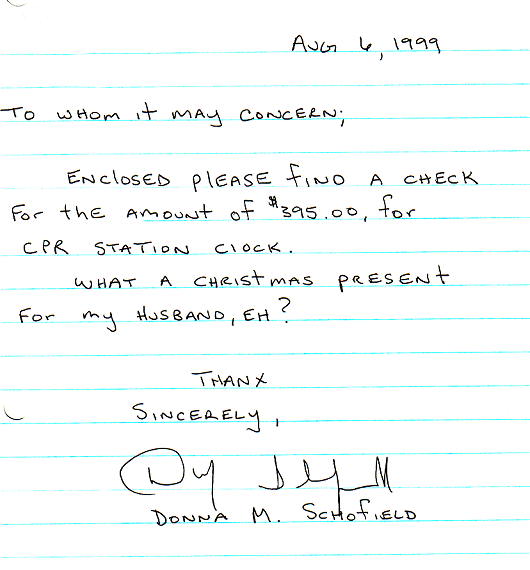 Aug 6, 1999
To whom it may concern;
Enclosed please find a check
for the amount of $395.00, for
CPR station clock.
What a Christmas present
for my husband, eh?
Thanx
Sincerely,
Donna M. Schofield